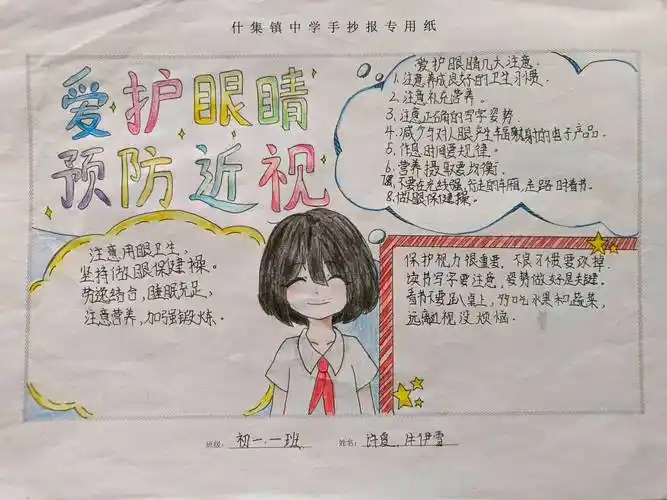 什集镇中学手抄报专用纸
爱护眼睛
预防近视
爱护眼睛几大注意.
1.注意养成良好的卫生习惯.
2.注意补充营养。
3.注意正确的写字姿势.
4.减少对人眼产生辐射的电子产品.
5.作息时间要规律。
6.营养摄取要均衡.
7.不要在光线强,行走的车厢,走路时看书.
8.做眼保健操。
注意用眼卫生,
坚持做眼保健操。
劳逸结合,睡眠充足,
注意营养,加强锻炼.
保护视力很重要.不良习惯要改掉.
读书写字要注意,姿势做好是关键.
看书不要趴桌上,多吃水果和蔬菜,
远离近视没烦恼.
班级: 初一.一班 姓名: 许夏.伊雪